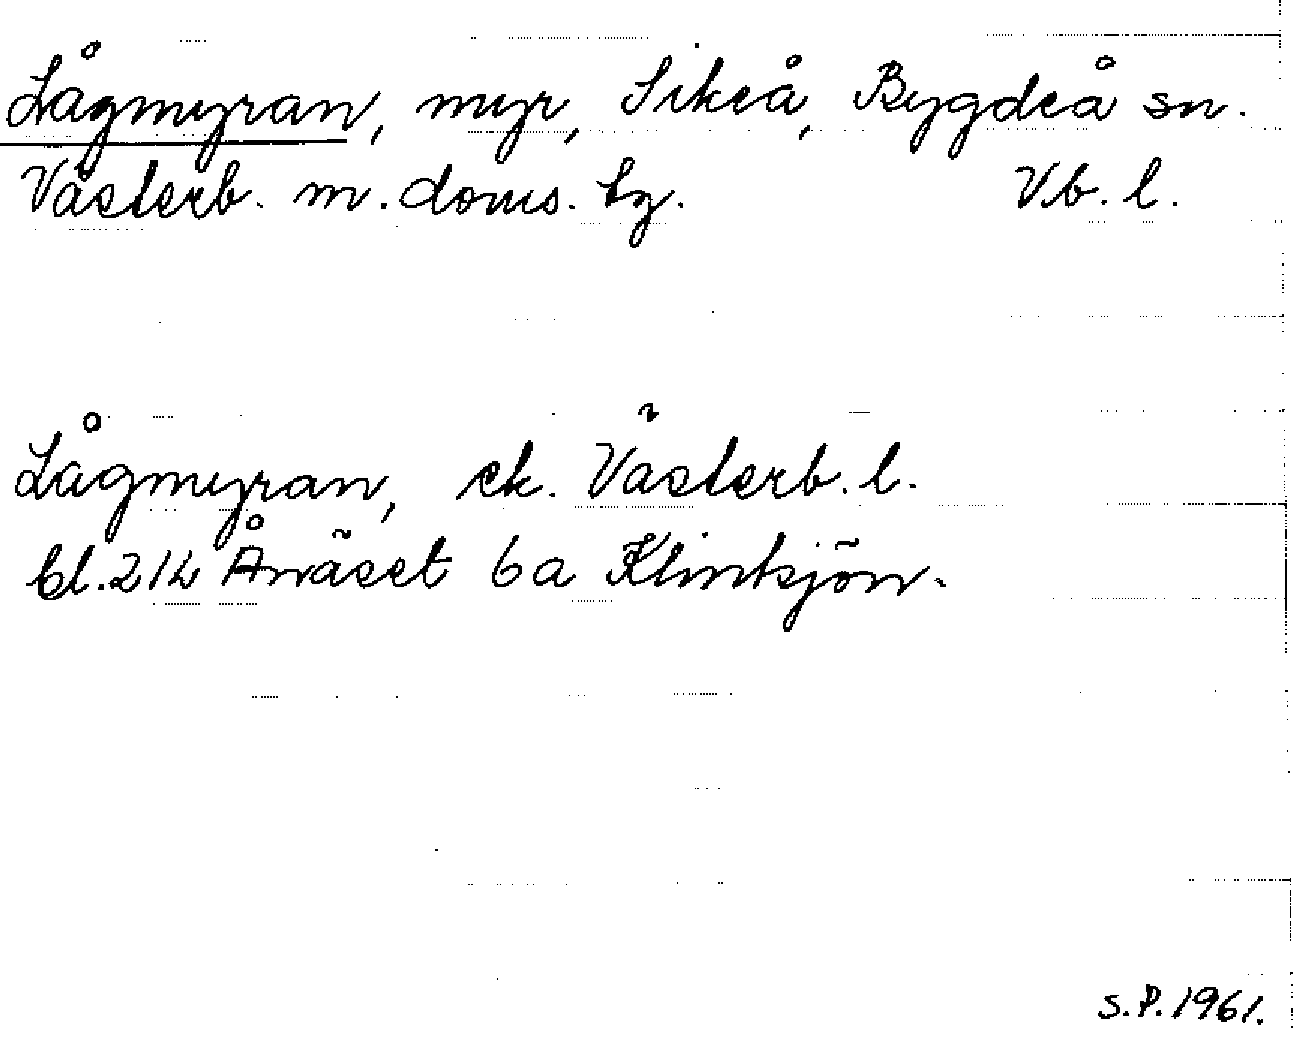 Lågmyran, myr, Sikeå, Bygdeå sn.
Västerb. m. doms. tg. V.b. l.
Lågmyran, ek. Västerb. l.
bl. 212 Ånäset 6a Klintsjön.
S.P. 1961.